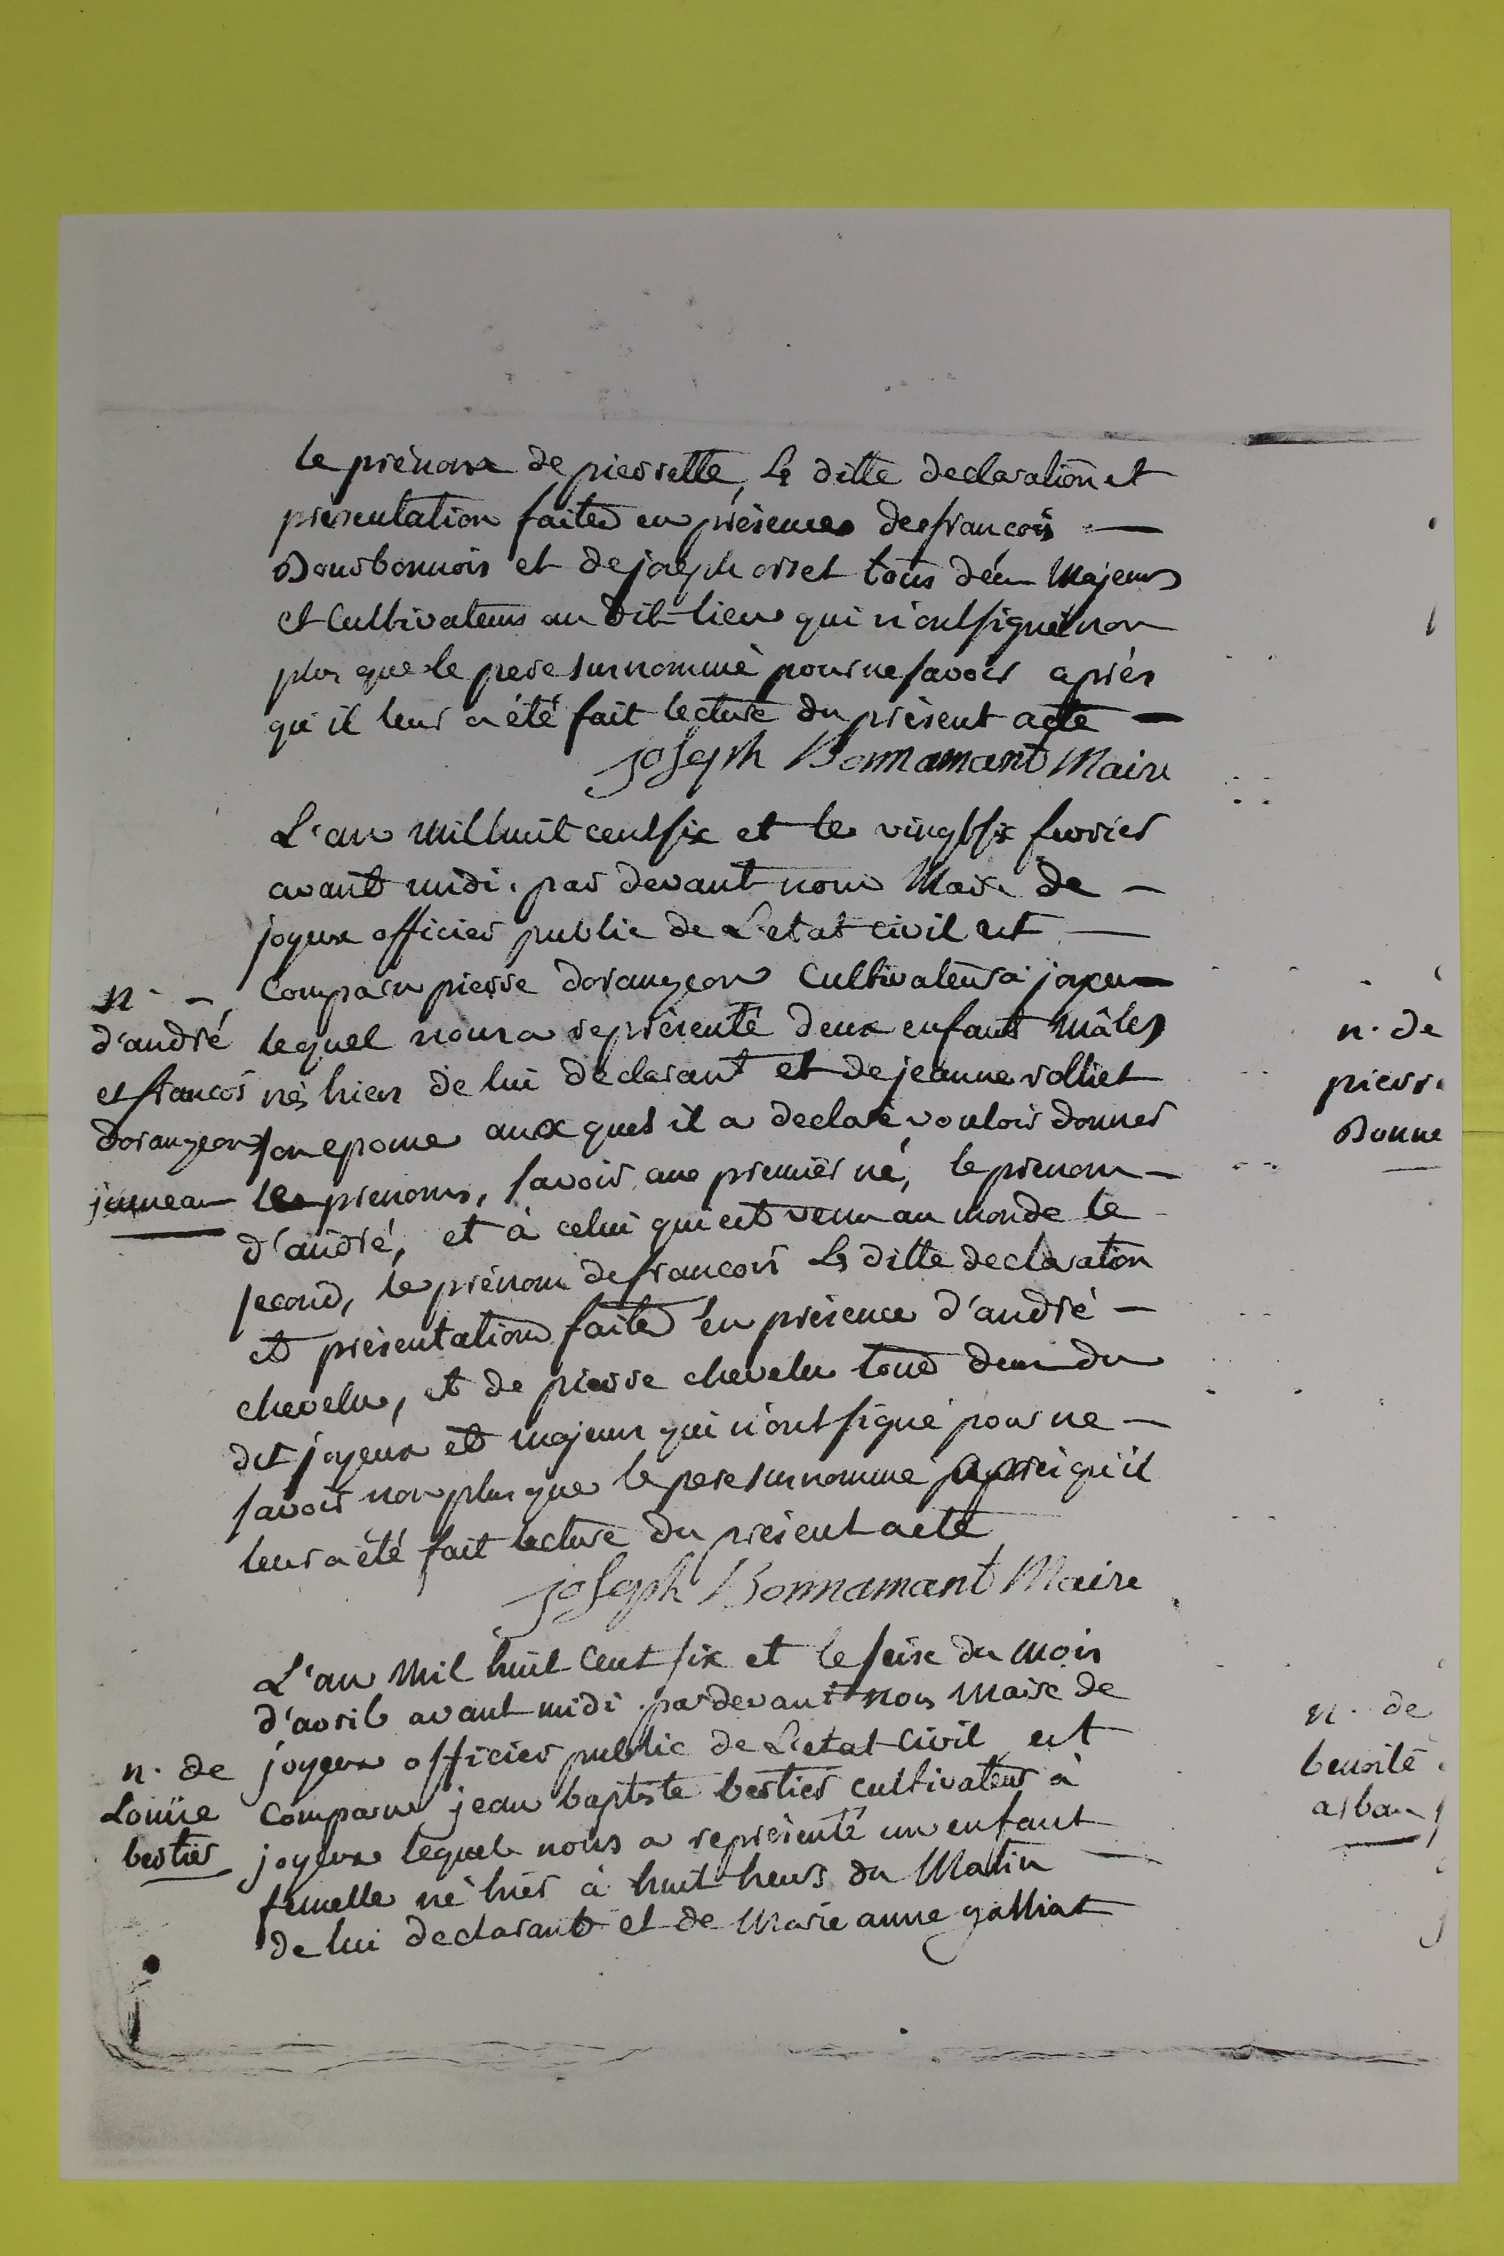 le prénom de pierrette, la ditte declaration et
presentation faite en présence de francois —
Bourbonnois et de joseph orset tous deux Majeurs
et Cultivateurs au dit lieu qui n'ont signé non
plus que le pere surnommé pour ne savoir après
qu'il leur a été fait lecture du présent acte —
joseph Bonnamant Maire
L'an mil huit cent six et le vingt six fevrier
avant midi. par devant nous Maire de —
joyeux officier public de L'etat civil est —
Comparu pierre dorangeon Cultivateur a joyeux
lequel nous a représenté deux enfant mâles
nés hier de lui declarant et de jeanne rolliet
son epouse aux quels il a declaré vouloir donner
les prenoms, savoir au premier né, le prenom —
d'andré, et à celui qui est venu au monde le
second, le prénom de francois la ditte declaration
et présentation faite en présence d'andré —
chevelu, et de pierre chevelu tous deux du
dit joyeux et majeurs qui n'ont signé pour ne —
savoir non plus que le pere surnommé après qu'il
leur a été fait lecture du présent acte
joseph Bonnamant Maire
L'an mil huit Cent six et le seize du mois
d'avril avant midi. par devant nous Maire de
joyeux officier public de L'etat civil est
Comparu jean baptiste bertier cultivateur à
joyeux lequel nous a représenté un enfant —
femelle né hier à huit heurs du Matin
de lui declarant et de Marie anne galliat
n. —
d'andré
et francois
dorangeon
jumeau
n. de
Louise
bertier
n. de
pierre
Bonne
n. de
benoite
arban